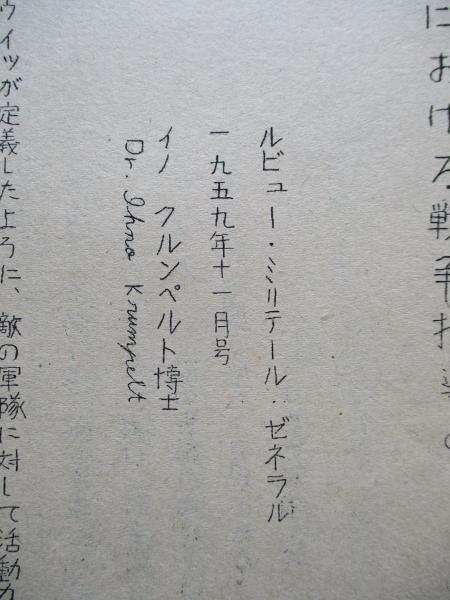 における戦争指導。
ルビュー・ミリテール・ゼネラル
一九五九年十一月号
イノ クルンペルト博士
Dr. Ihno Krumpelt
ウイツが定義したように、敵の軍隊に対して活動力